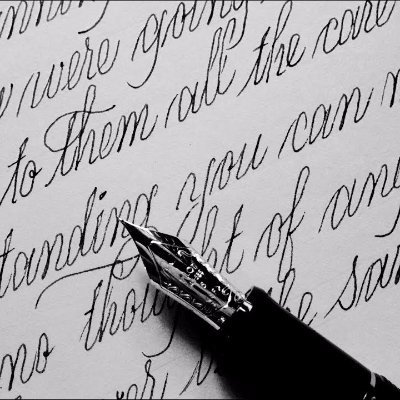 nning
were going
to them all the care
tanding you can
no thought of any
the sam